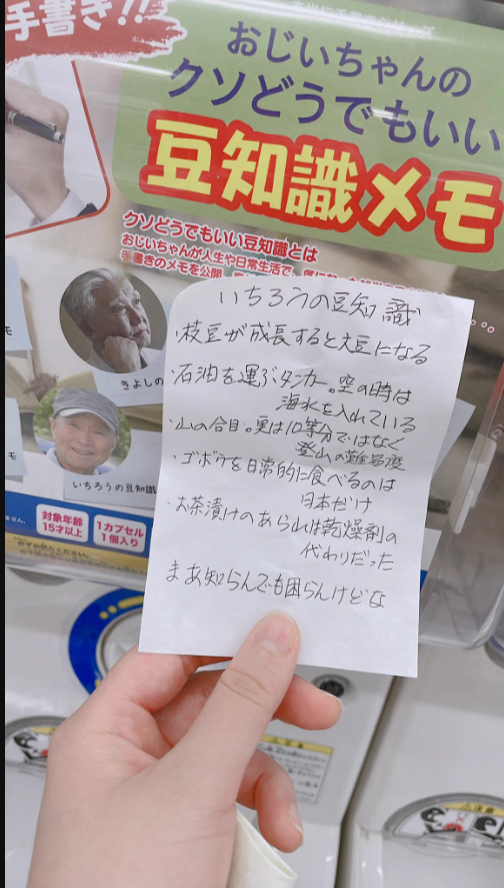 手書き!!
おじいちゃんの
クソどうでもいい
豆知識メモ
クソどうでもいい豆知識とは
おじいちゃんが人生や日常生活で、
手書きのメモを公開
きよしの
いちろうの豆知識
対象年齢
15才以上
1カプセル
1個入り
いちろうの豆知識
・枝豆が成長すると大豆になる
・石油を運ぶタンカー。空の時は
海水を入れている
・山の合目。実は10等分ではなく
登山の難易度
・ゴボウを日常的に食べるのは
日本だけ
・お茶漬けのあられは乾燥剤の
代わりだった
まあ知らんでも困らんけどな